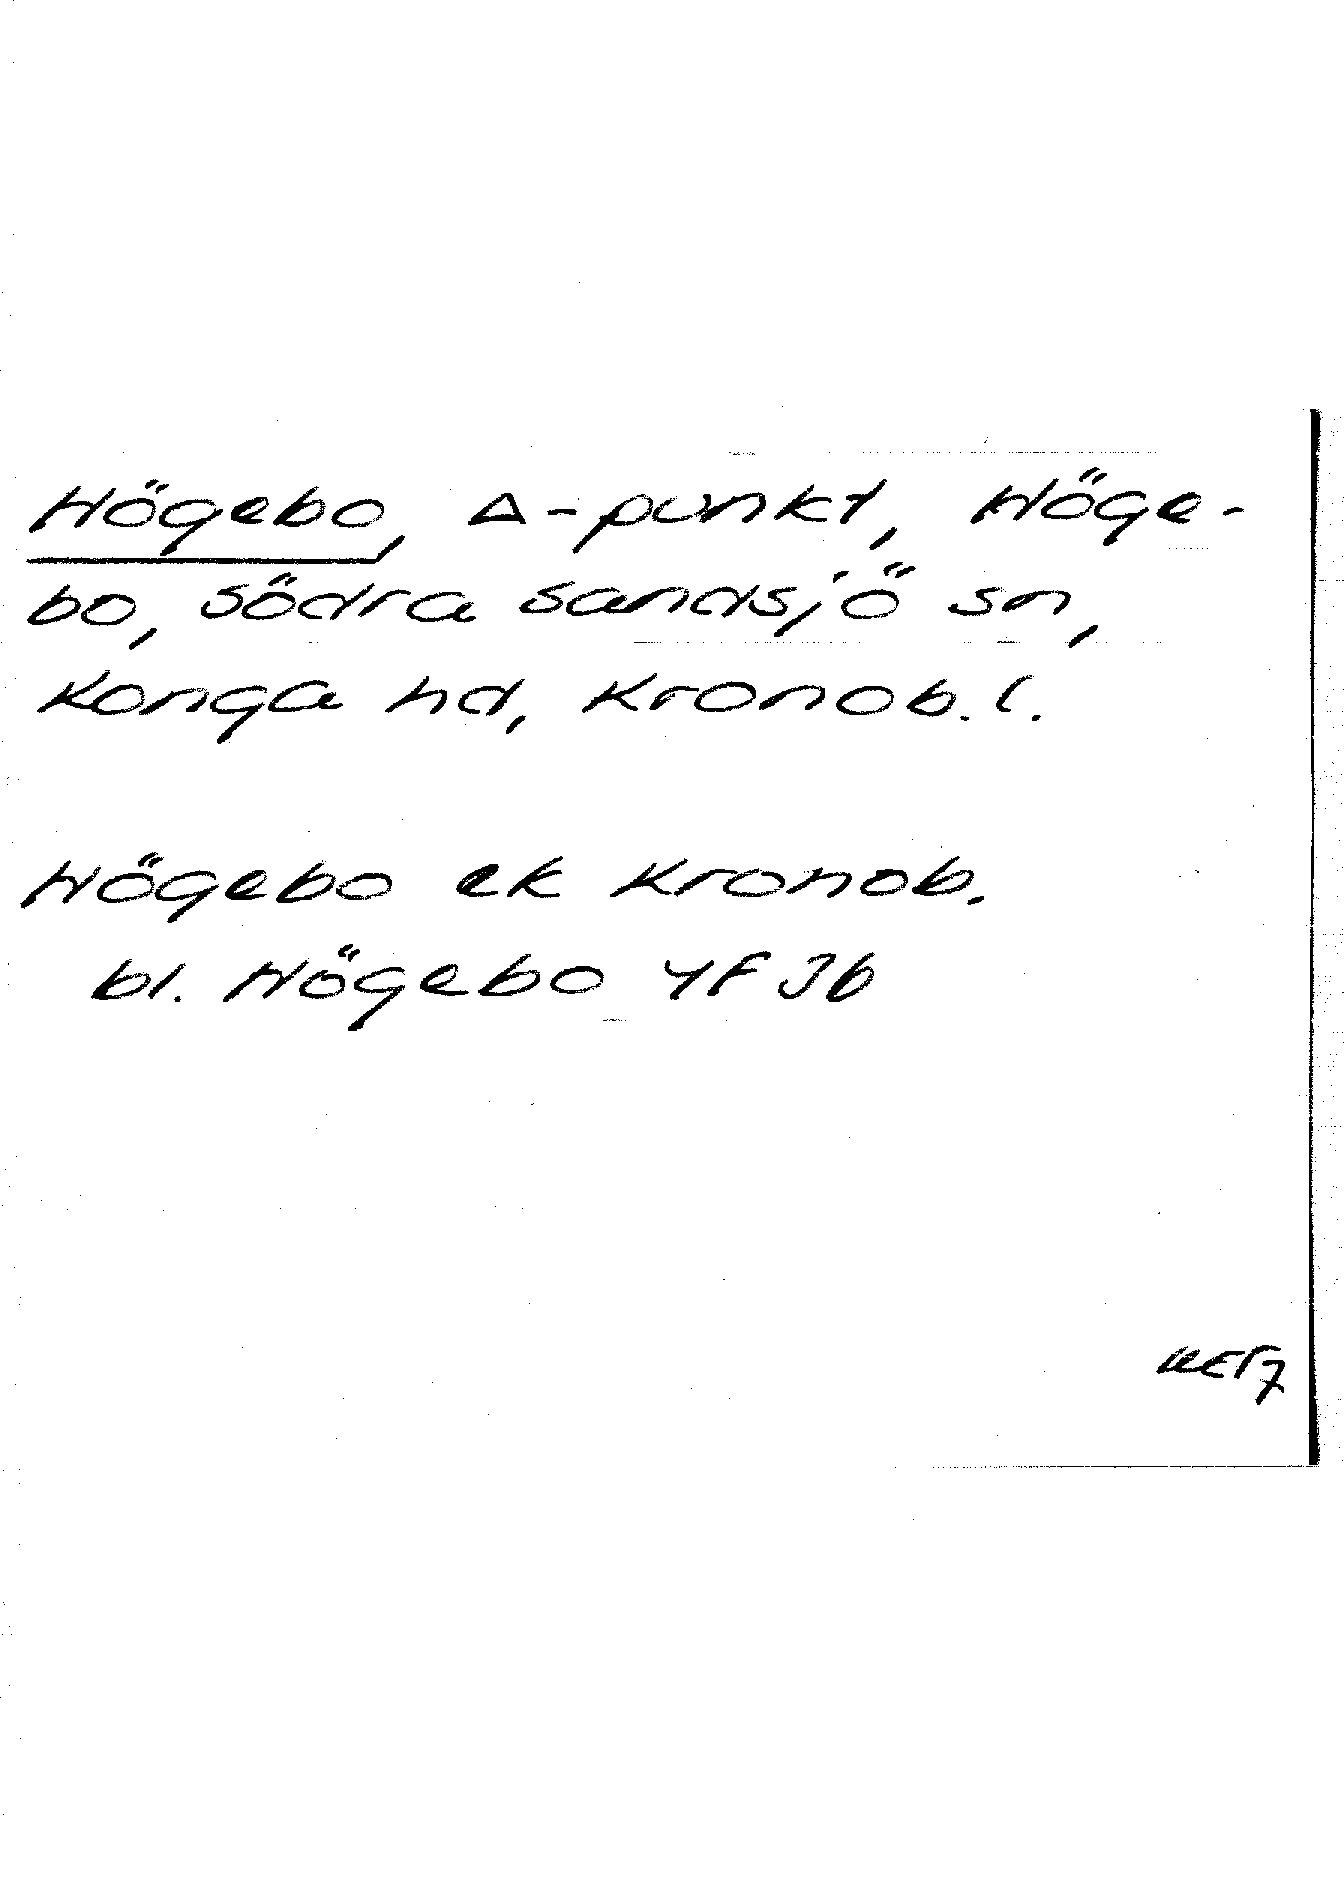 Högebo, Δ-punkt, Höge-
bo, Södra Sandsjö sn,
Konga hd, Kronob. l.
Högebo ek Kronob.
bl. Högebo 4F Jb